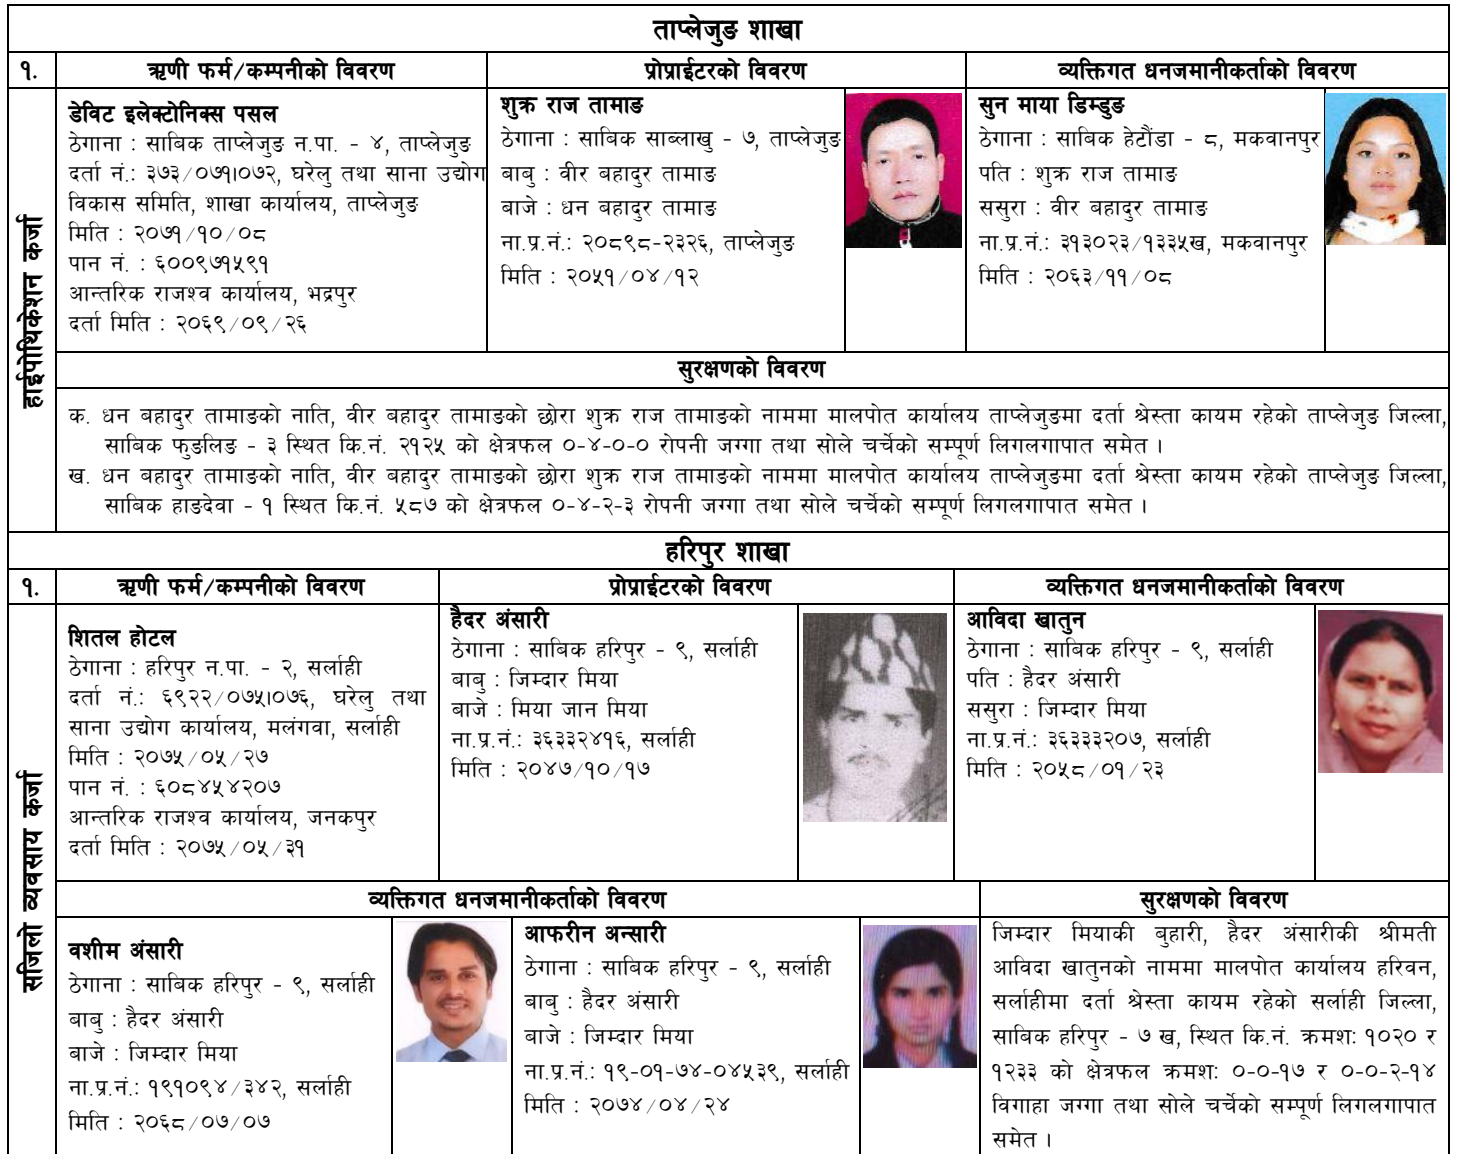 ताप्लेजुङ शाखा
१.
ऋणी फर्म/कम्पनीको विवरण
प्रोप्राईटरको विवरण
व्यक्तिगत धनजमानीकर्ताको विवरण
हाईपोथिकेशन कर्जा
डेविट इलेक्टोनिक्स पसल
ठेगाना : साबिक ताप्लेजुङ न.पा. - ४, ताप्लेजुङ
दर्ता नं.: ३७३/०७१।०७२, घरेलु तथा साना उद्योग
विकास समिति, शाखा कार्यालय, ताप्लेजुङ
मिति : २०७१/१०/०८
पान नं. : ६००९७१५९१
आन्तरिक राजश्व कार्यालय, भद्रपुर
दर्ता मिति : २०६९/०९/२६
शुक्र राज तामाङ
ठेगाना : साबिक साब्लाखु - ७, ताप्लेजुङ
बाबु : वीर बहादुर तामाङ
बाजे : धन बहादुर तामाङ
ना.प्र.नं.: २०८९८-२३२६, ताप्लेजुङ
मिति : २०५१/०४/१२
सुन माया डिम्डुङ
ठेगाना : साबिक हेटौंडा - ८, मकवानपुर
पति : शुक्र राज तामाङ
ससुरा : वीर बहादुर तामाङ
ना.प्र.नं.: ३१३०२३/१३३५ख, मकवानपुर
मिति : २०६३/११/०८
सुरक्षणको विवरण
क. धन बहादुर तामाङको नाति, वीर बहादुर तामाङको छोरा शुक्र राज तामाङको नाममा मालपोत कार्यालय ताप्लेजुङमा दर्ता श्रेस्ता कायम रहेको ताप्लेजुङ जिल्ला,
साबिक फुङलिङ - ३ स्थित कि.नं. २१२५ को क्षेत्रफल ०-४-०-० रोपनी जग्गा तथा सोले चर्चेको सम्पूर्ण लिगलगापात समेत ।
ख. धन बहादुर तामाङको नाति, वीर बहादुर तामाङको छोरा शुक्र राज तामाङको नाममा मालपोत कार्यालय ताप्लेजुङमा दर्ता श्रेस्ता कायम रहेको ताप्लेजुङ जिल्ला,
साबिक हाङदेवा - १ स्थित कि.नं. ५८७ को क्षेत्रफल ०-४-२-३ रोपनी जग्गा तथा सोले चर्चेको सम्पूर्ण लिगलगापात समेत ।
हरिपुर शाखा
१.
ऋणी फर्म/कम्पनीको विवरण
प्रोप्राईटरको विवरण
व्यक्तिगत धनजमानीकर्ताको विवरण
सजिलो व्यवसाय कर्जा
शितल होटल
ठेगाना : हरिपुर न.पा. - २, सर्लाही
दर्ता नं.: ६९२२/०७५।०७६, घरेलु तथा
साना उद्योग कार्यालय, मलंगवा, सर्लाही
मिति : २०७५/०५/२७
पान नं. : ६०८४५४२०७
आन्तरिक राजश्व कार्यालय, जनकपुर
दर्ता मिति : २०७५/०५/३१
हैदर अंसारी
ठेगाना : साबिक हरिपुर - ९, सर्लाही
बाबु : जिम्दार मिया
बाजे : मिया जान मिया
ना.प्र.नं.: ३६३३२४१६, सर्लाही
मिति : २०४७/१०/१७
आविदा खातुन
ठेगाना : साबिक हरिपुर - ९, सर्लाही
पति : हैदर अंसारी
ससुरा : जिम्दार मिया
ना.प्र.नं.: ३६३३३२०७, सर्लाही
मिति : २०५८/०१/२३
व्यक्तिगत धनजमानीकर्ताको विवरण
सुरक्षणको विवरण
वशीम अंसारी
ठेगाना : साबिक हरिपुर - ९, सर्लाही
बाबु : हैदर अंसारी
बाजे : जिम्दार मिया
ना.प्र.नं.: १९१०९४/३४२, सर्लाही
मिति : २०६८/०७/०७
आफरीन अन्सारी
ठेगाना : साबिक हरिपुर - ९, सर्लाही
बाबु : हैदर अंसारी
बाजे : जिम्दार मिया
ना.प्र.नं.: १९-०१-७४-०४५३९, सर्लाही
मिति : २०७४/०४/२४
जिम्दार मियाकी बुहारी, हैदर अंसारीकी श्रीमती
आविदा खातुनको नाममा मालपोत कार्यालय हरिवन,
सर्लाहीमा दर्ता श्रेस्ता कायम रहेको सर्लाही जिल्ला,
साबिक हरिपुर - ७ ख, स्थित कि.नं. क्रमशः १०२० र
१२३३ को क्षेत्रफल क्रमशः ०-०-१७ र ०-०-२-१४
विगाहा जग्गा तथा सोले चर्चेको सम्पूर्ण लिगलगापात
समेत ।